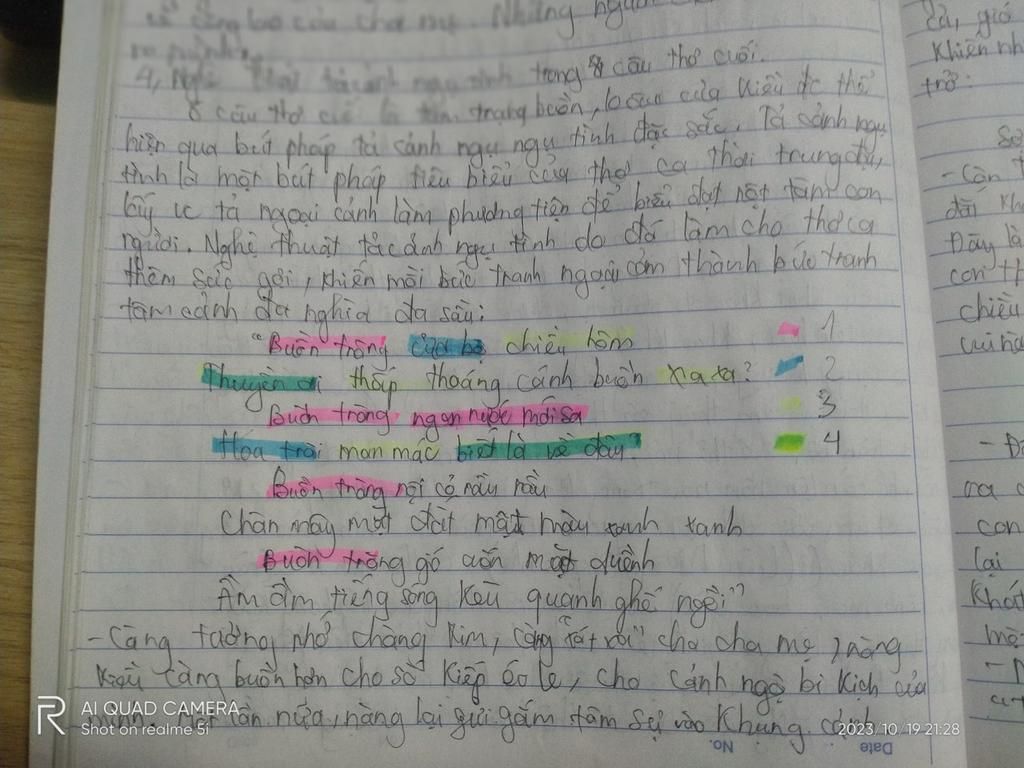 công lao của cha mẹ. Những người
4, Nghệ thuật tả cảnh ngụ tình trong 8 câu thơ cuối.
8 câu thơ cuối là tâm trạng buồn, lo âu của Kiều đc thể
hiện qua bút pháp tả cảnh ngụ ngụ tình đặc sắc. Tả cảnh ngụ
tình là một bút pháp tiêu biểu của thơ ca thời trung đại,
lấy tả ngoại cảnh làm phương tiện để biểu đạt nội tâm con
người. Nghệ thuật tả cảnh ngụ tình do đó làm cho thơ ca
thêm sức gợi, khiến mỗi bức tranh ngoại cảnh thành bức tranh
tâm cảnh đa nghĩa đa sầu:
"Buồn trông cửa bể chiều hôm 1
Thuyền ai thấp thoáng cánh buồn xa xa? 2
Buồn trông ngọn nước mới sa 3
Hoa trôi man mác biết là về đâu 4
Buồn trông nội cỏ rầu rầu
Chân mây mặt đất một màu xanh xanh
Buồn trông gió cuốn mặt duềnh
Ầm ầm tiếng sóng kêu quanh ghế ngồi"
- Càng tưởng nhớ chàng Kim, càng "xót xa" cho cha mẹ, nàng
Kiều càng buồn hơn cho số kiếp éo le, cho cảnh ngộ bi kịch của
mình. Một lần nữa, nàng lại gửi gắm tâm sự vào khung cảnh
cả, gió
khiến nh
trở.
- Còn
Đây là
con th
chiều
ra
con
lại
khát
AI QUAD CAMERA
Shot on realme 5i
2023/10/19 21:28
No.
Date